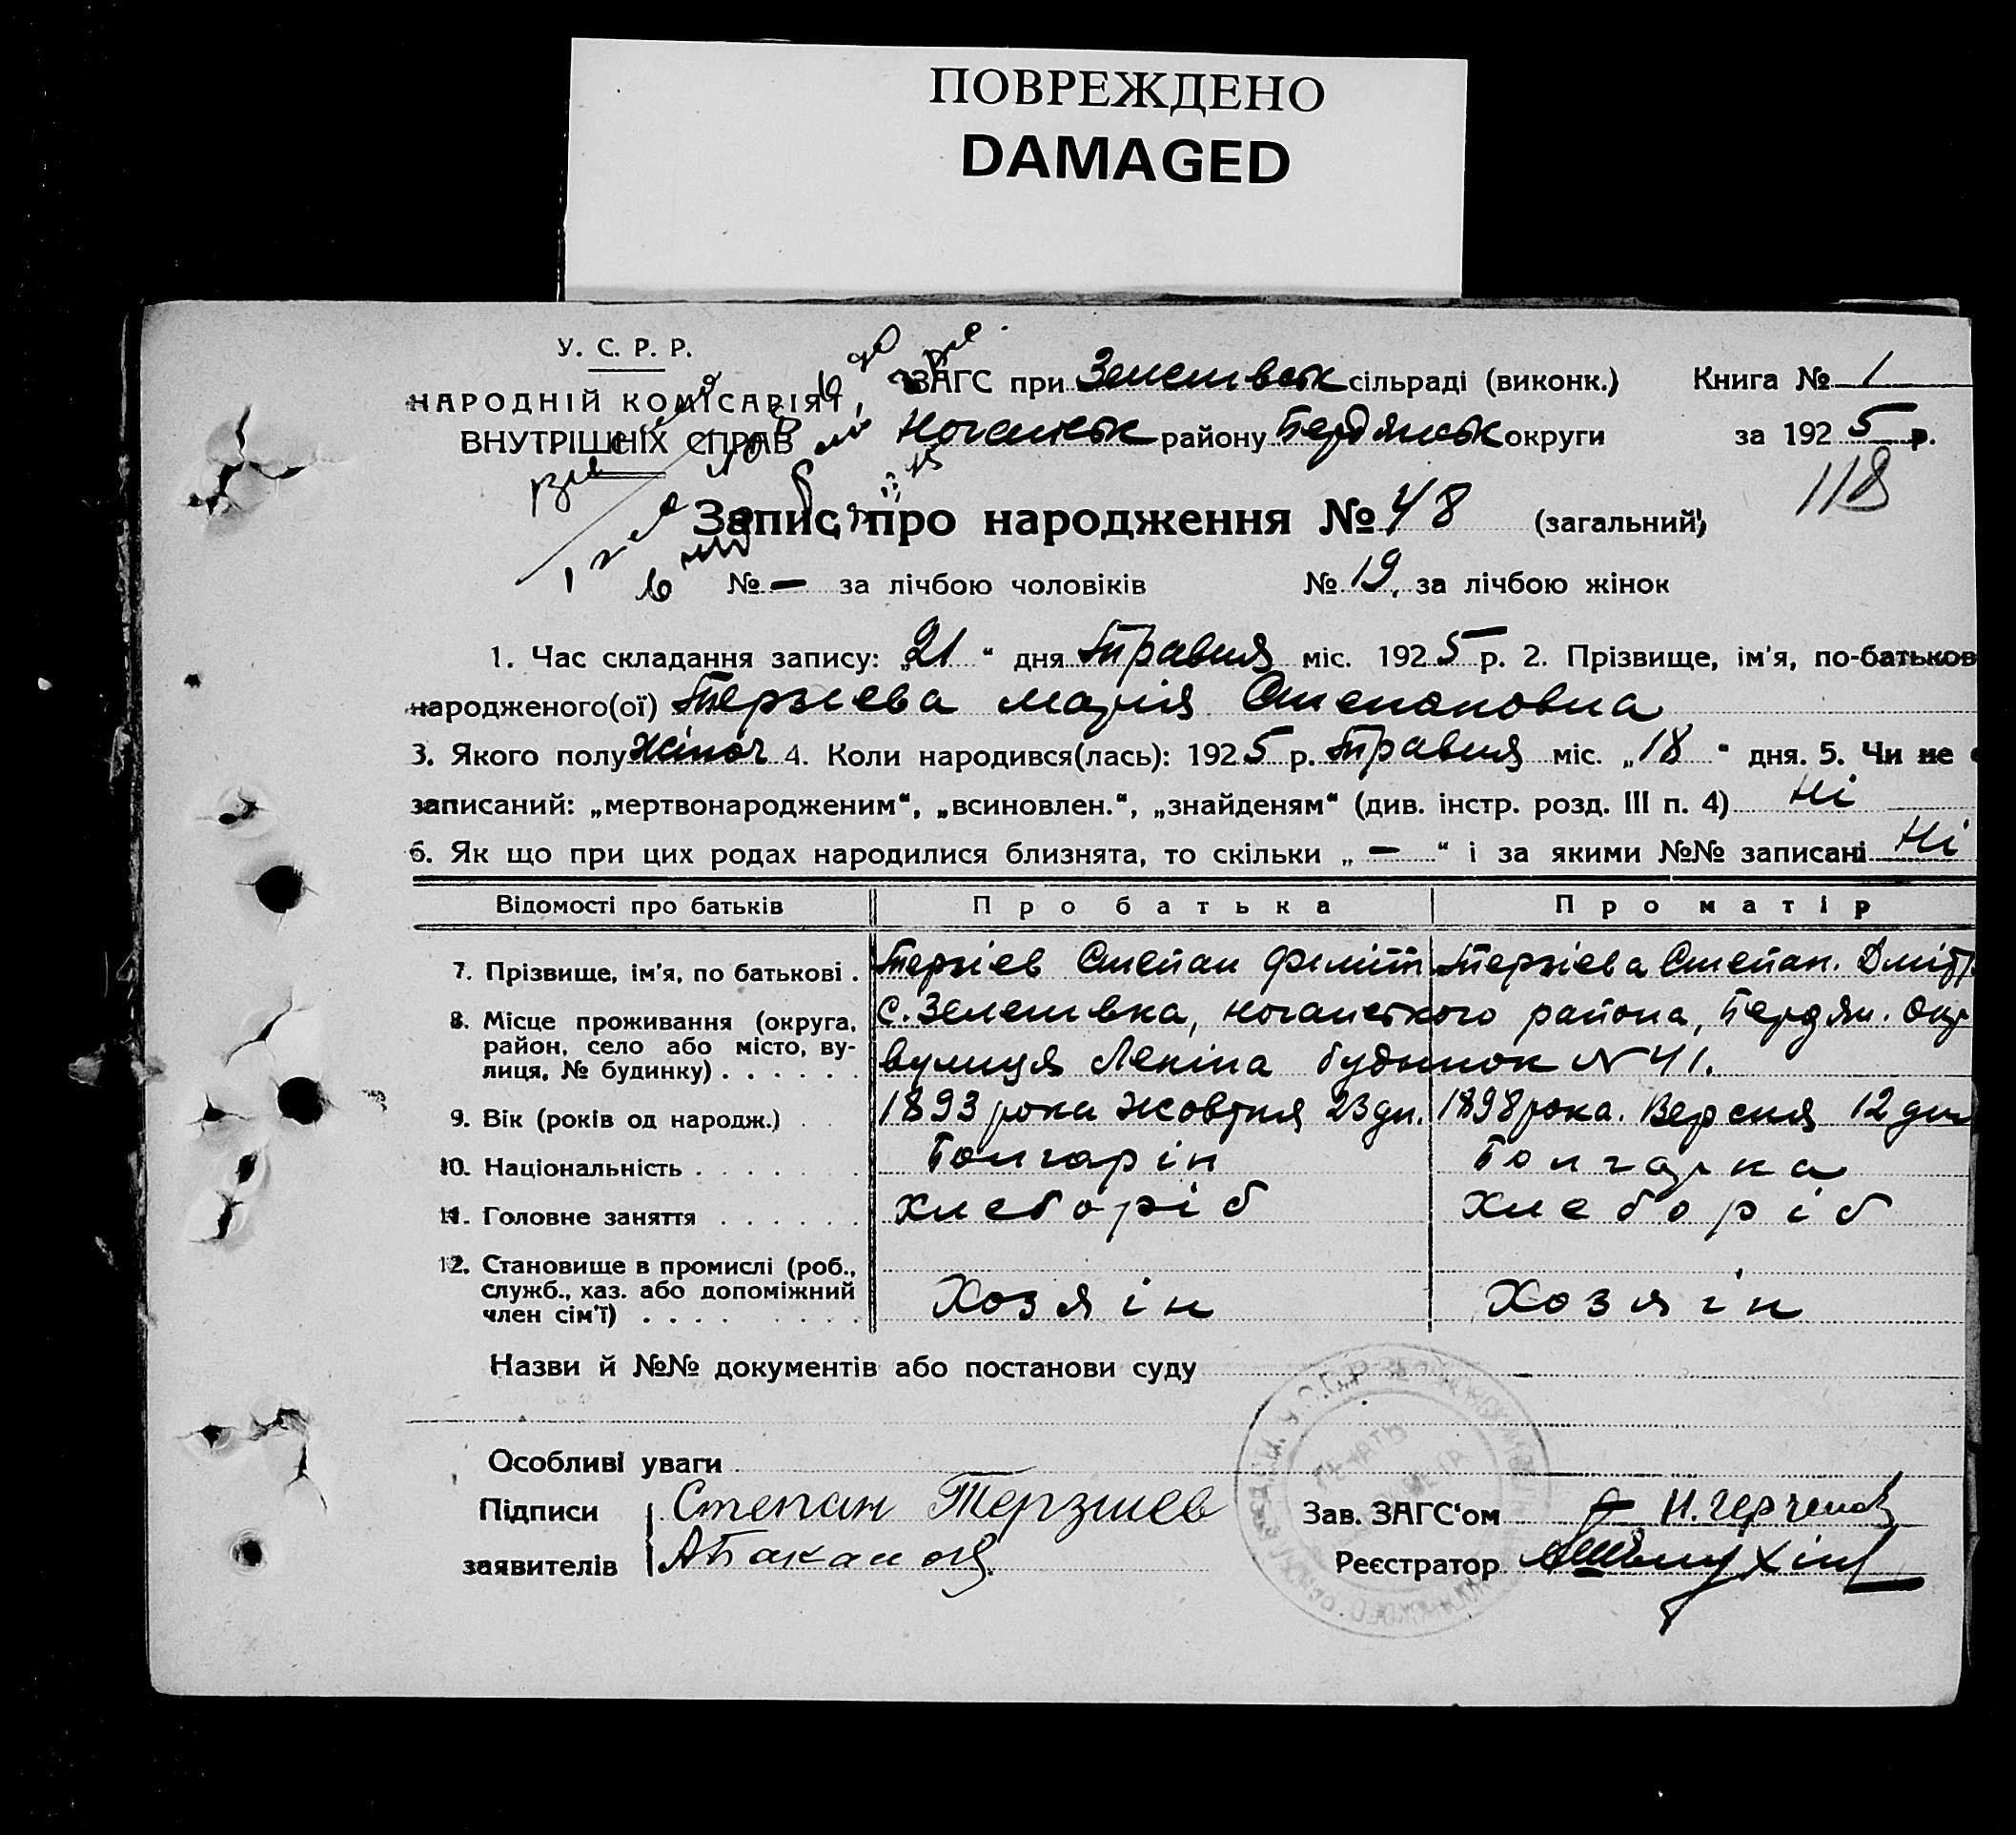 ПОВРЕЖДЕНО
DAMAGED
У. С. Р. Р.
НАРОДНІЙ КОМІСАРІЯТ
ВНУТРІШНІХ СПРАВ
ЗАГС при сільраді (виконк.) Книга № 1
Ногайськ району Бердянськ округи за 1925 р.
118
Запис про народження № 48 (загальний)
№ — за лічбою чоловіків № 19. за лічбою жінок
1. Час складання запису: „21“ дня Травня міс. 1925 р. 2. Прізвище, ім'я, по-батьков
народженого(ої) Терзієва Марія Степановна
3. Якого полу Жіноч 4. Коли народився(лась): 1925 р. Травня міс. „18“ дня. 5. Чи не
записаний: „мертвонародженим“, „всиновлен.“, „знайденям“ (див. інстр. розд. III п. 4) Ні
6. Як що при цих родах народилися близнята, то скільки „—“ і за якими №№ записані Ні
Відомості про батьків Про батька Про матір
7. Прізвище, ім'я, по батькові . Терзієв Степан Терзієва Степан. Дміт.
8. Місце проживання (округа, район, село або місто, ву-лиця, № будинку) . . . . . . с. Зеленивка, Ногайського района, Бердян. Окр
вулиця Леніна будинок № 41.
9. Вік (років од народж.) . . 1893 рока Жовтня 23 дн. 1898 рока. Версня 12 дня
10. Національність . . . . . Болгарін Болгарка
11. Головне заняття . . . . . . Хлеборіб Хлеборіб
12. Становище в промислі (роб., служб., хаз. або допоміжний член сім'ї) . . . . Хозяін Хозяін
Назви й №№ документів або постанови суду —
Особливі уваги
Підписи Степан Терзиев Зав. ЗАГС'ом
заявителів Реєстратор